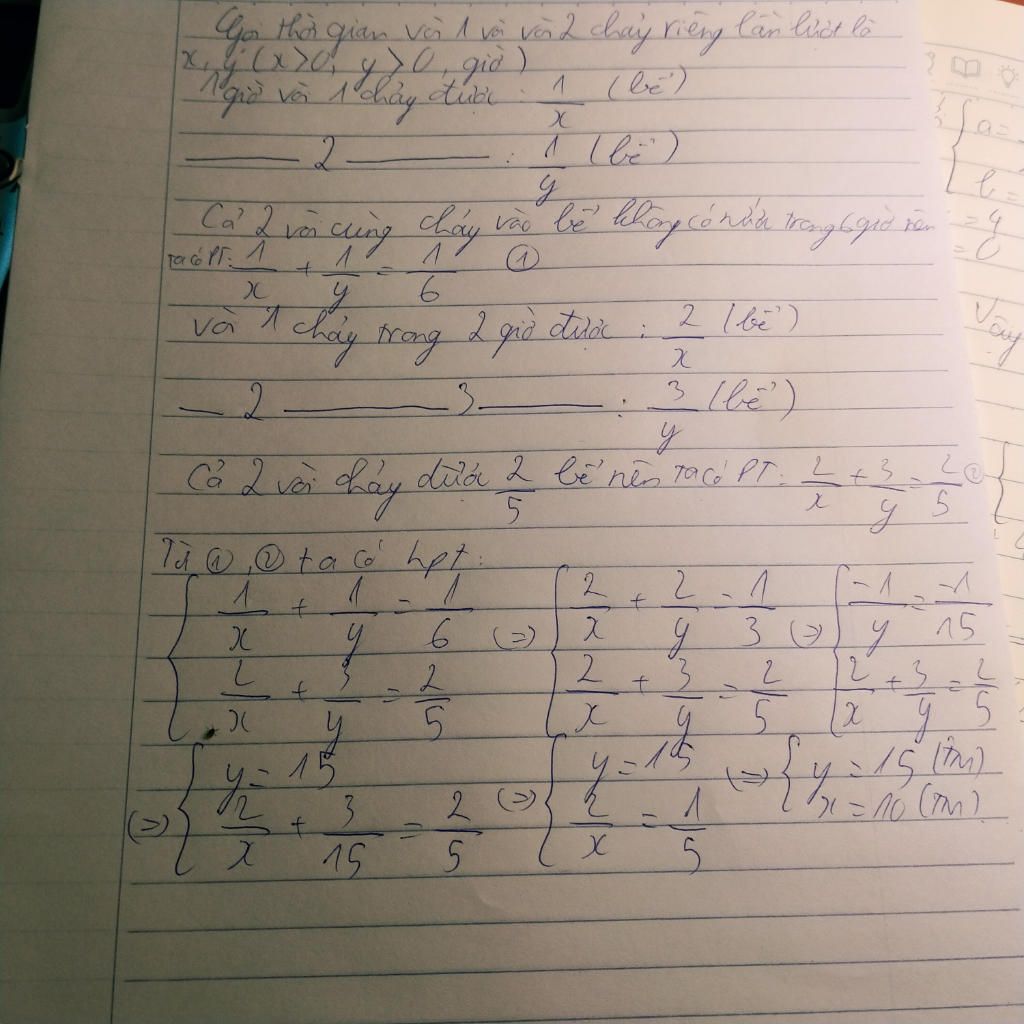 Gọi thời gian vòi 1 và vòi 2 chảy riêng lần lượt là
x, y (x>0, y>0, giờ)
1 giờ vòi 1 chảy được : 1/x (bể)
——— 2 ——— : 1/y (bể)
Cả 2 vòi cùng chảy vào bể không có nước trong 6 giờ nên
ta có PT: 1/x + 1/y = 1/6 ①
vòi 1 chảy trong 2 giờ được : 2/x (bể)
— 2 ——— 3 ——— : 3/y (bể)
Cả 2 vòi chảy được 2/5 bể nên ta có PT: 2/x + 3/y = 2/5 ②
Từ ①, ② ta có hpt:
{ 1/x + 1/y = 1/6 (=) { 2/x + 2/y = 1/3 (=) { -1/y = -1/15
2/x + 3/y = 2/5 2/x + 3/y = 2/5 2/x + 3/y = 2/5
(=) { y = 15 (=) { y = 15 (=) { y = 15 (TM)
2/x + 3/15 = 2/5 2/x = 1/5 x = 10 (TM)
{ a =
b =
= 4
= 0
Vậy